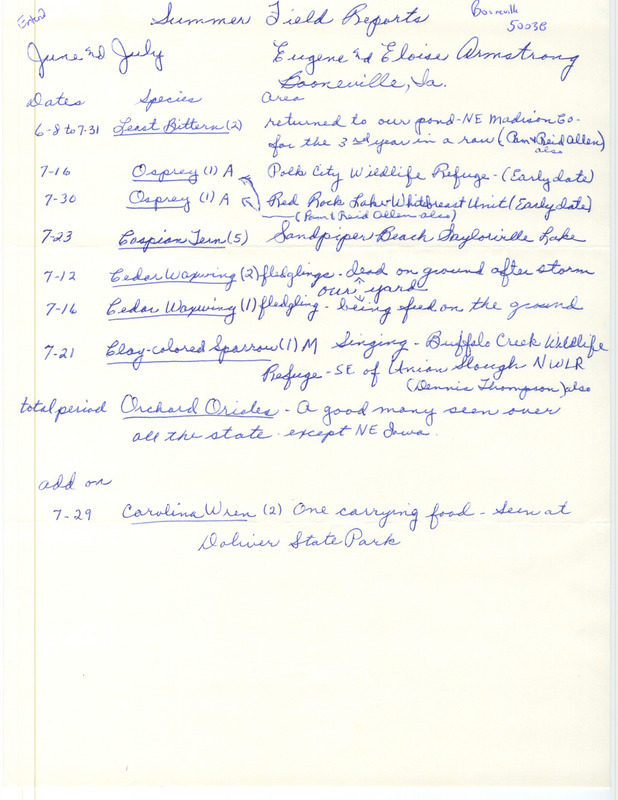 Entered
Summer Field Reports
Booneville
50038
June and July
Eugene and Eloise Armstrong
Booneville, Ia.
Dates Species Area
6-8 to 7-31 Least Bittern (2) returned to our pond-NE Madison Co-
for the 3rd year in a row (Pam & Reid Allen)
also
7-16 Osprey (1) A Polk City Wildlife Refuge - (Early date)
7-30 Osprey (1) A Red Rock Lake - Whitebreast Unit (Early date)
(Pam & Reid Allen also)
7-23 Caspian Tern (5) Sandpiper Beach Saylorville Lake
7-12 Cedar Waxwing (2) fledglings - dead on ground after storm
our yard
7-16 Cedar Waxwing (1) fledgling - being fed on the ground
7-21 Clay-colored Sparrow (1) M Singing - Buffalo Creek Wildlife
Refuge - SE of Union Slough NWLR
(Dennis Thompson) also
total period Orchard Orioles - A good many seen over
all the state except NE Iowa.
add on
7-29 Carolina Wren (2) One carrying food - seen at
Doliver State Park